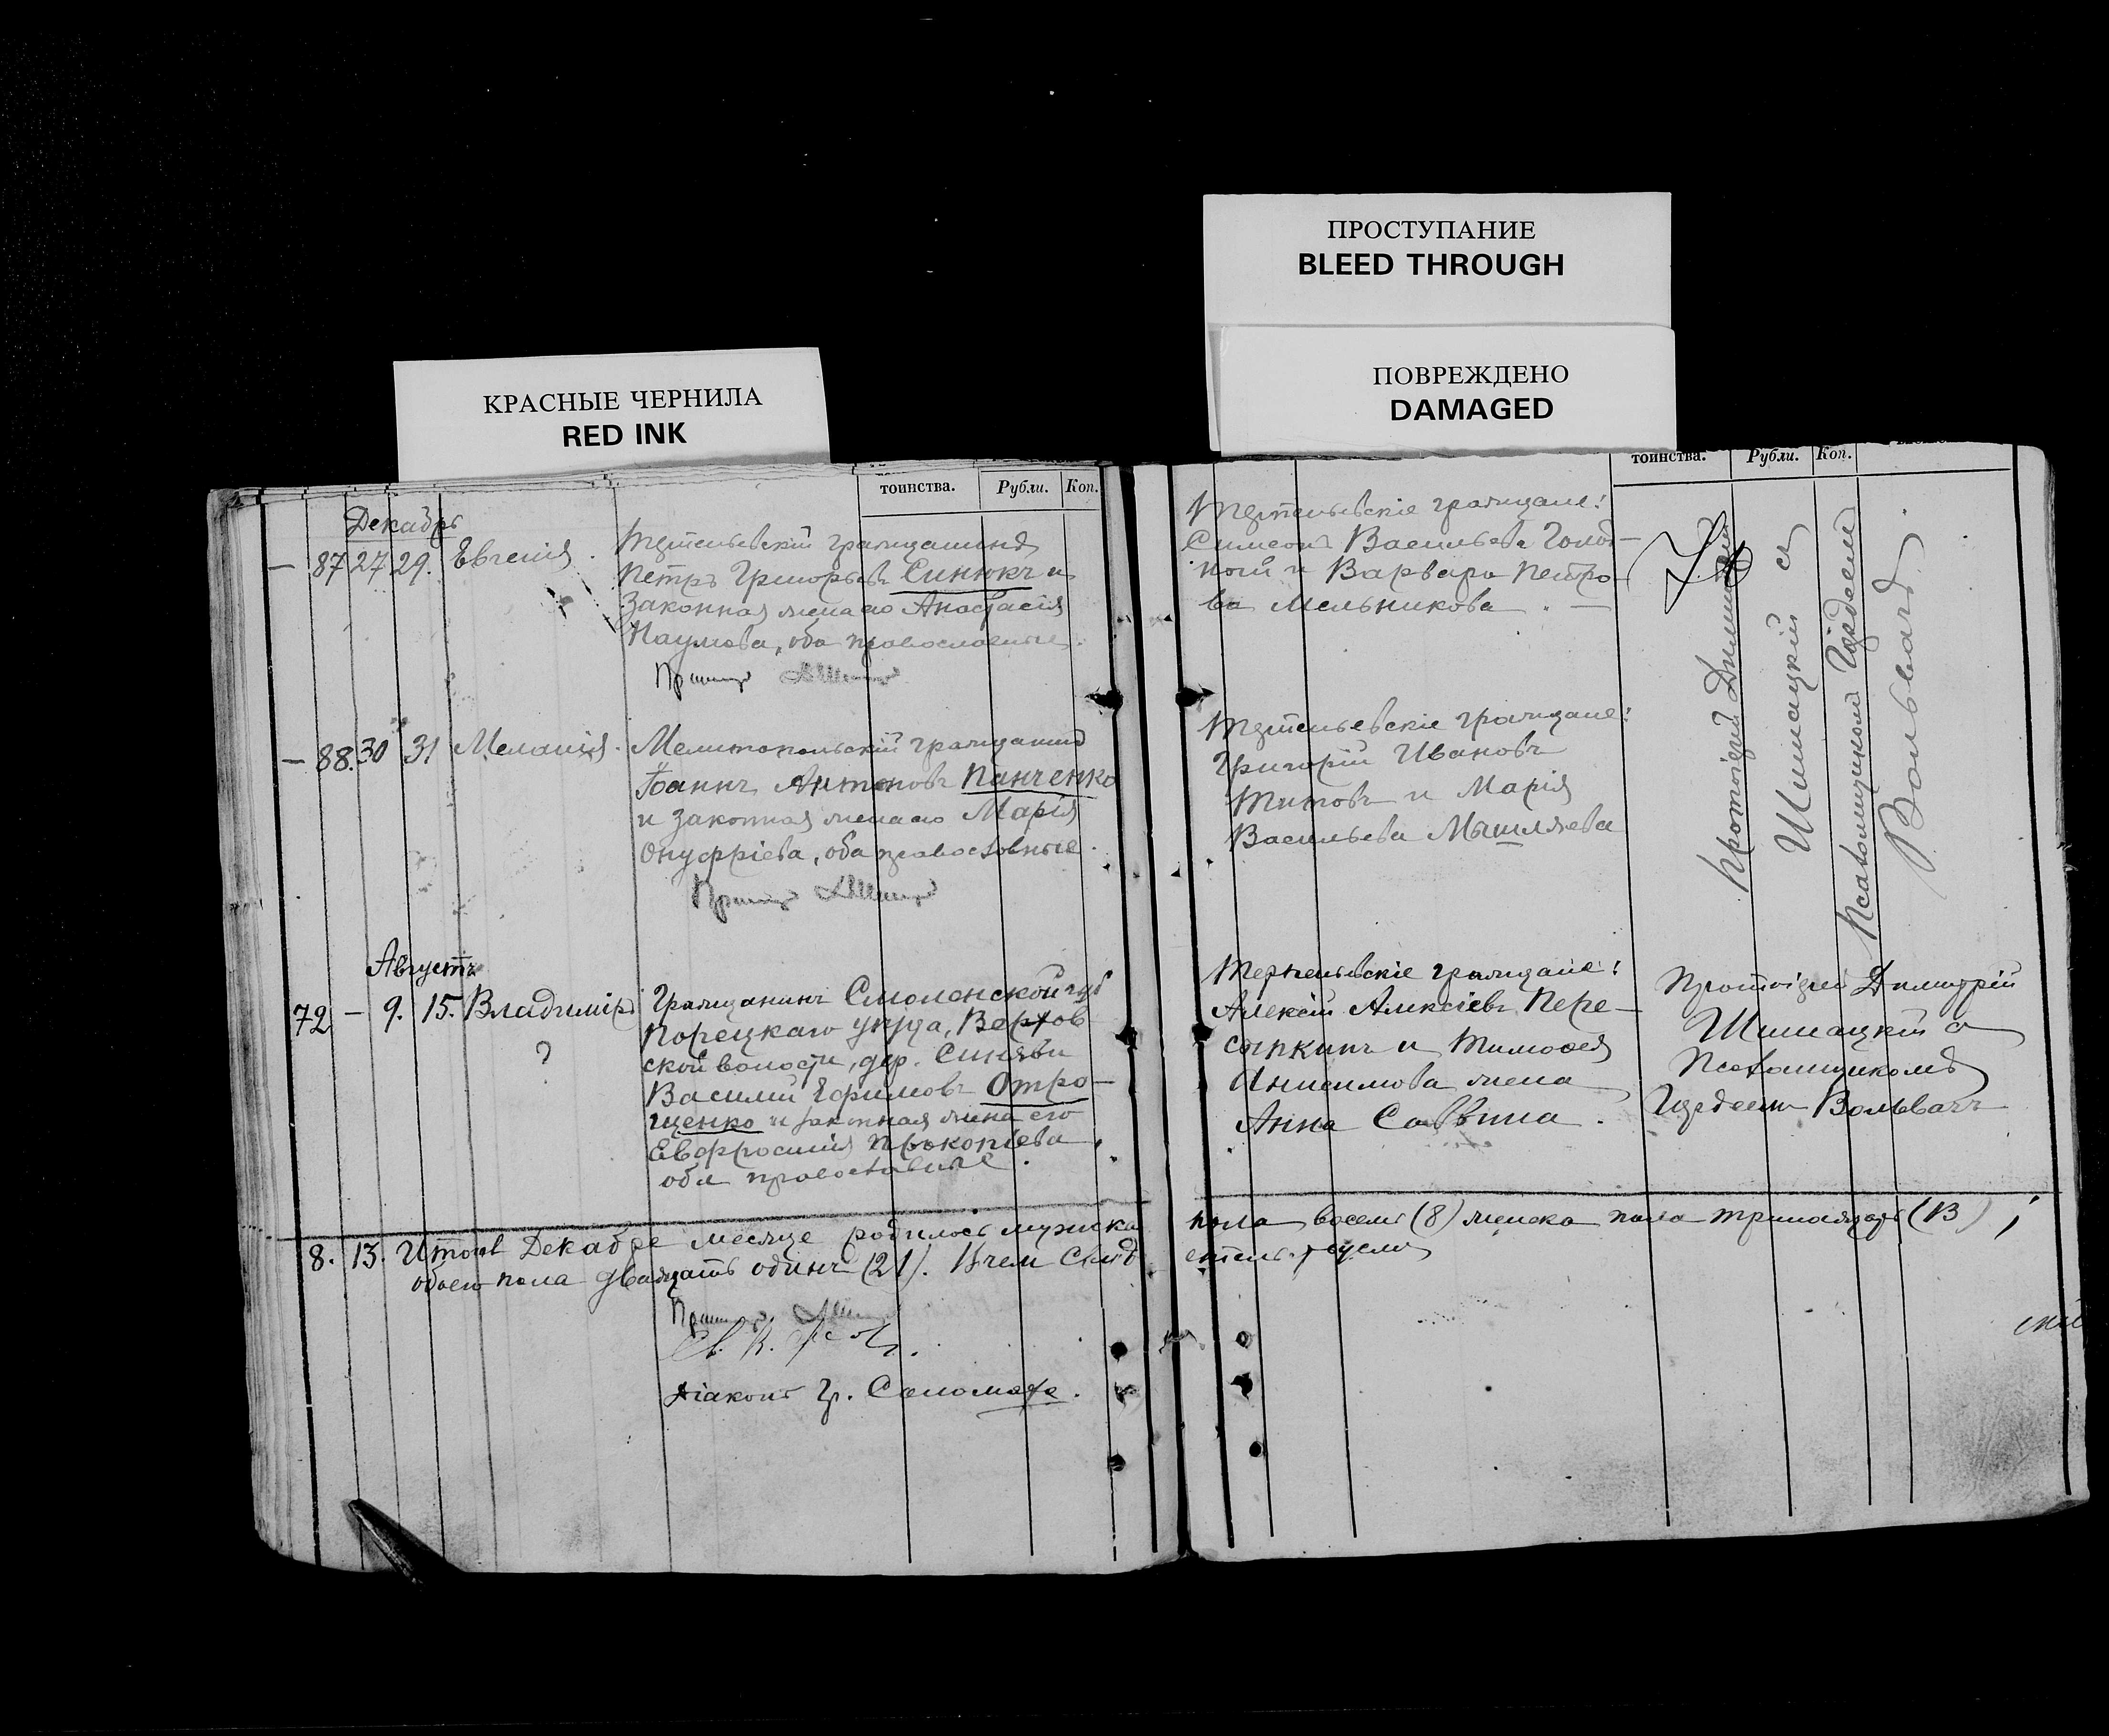 ПРОСТУПАНИЕ
BLEED THROUGH
ПОВРЕЖДЕНО
DAMAGED
КРАСНЫЕ ЧЕРНИЛА
RED INK
тоинства. Рубли. Коп.
Декабрь
— 87 27 29. Евгенія.
гражданинъ
Петръ Григорьевъ Синюкъ и
законная жена его Анастасія
Наумова, оба православные.
— 88. 30 31 Меланія.
Мелитопольскій гражданинъ
Іоаннъ Антоновъ Панченко
и законная жена его Марія
Онуфріева, оба православные.
Августъ
72 — 9. 15. Владиміръ
?
Гражданинъ Смоленской губ
Порецкаго уѣзда,
ской волости, дер. Синяви
Василій Ефимовъ Отро—
щенко и законная жена его
Евфросинія Прокопіева,
оба православные.
8. 13. Итого въ Декабре месяце родилось мужска
обоего пола двадцать одинъ (21). В чем свид
Діаконъ Гр. Саломаха.
тоинства. Рубли. Коп.
граждане:
Симеонъ Васильевъ Голод—
ной и Варвара Петро—
ва Мельникова. —
граждане:
Григорій Ивановъ
Титовъ и Марія
Васильева Мышляева
Протоіерей Димитрій
Шишацкій съ
Псаломщикомъ Гордеемъ
Вольвачъ
граждане:
Алексій Алексіевъ Пере—
сыпкинъ и Тимофея
Анисимова жена
Анна Саввина.
Протоіерей Димитрій
Шишацкій съ
Псаломщикомъ
Гордеемъ Вольвачъ
пола восемь (8) женска пола тринадцать (13);